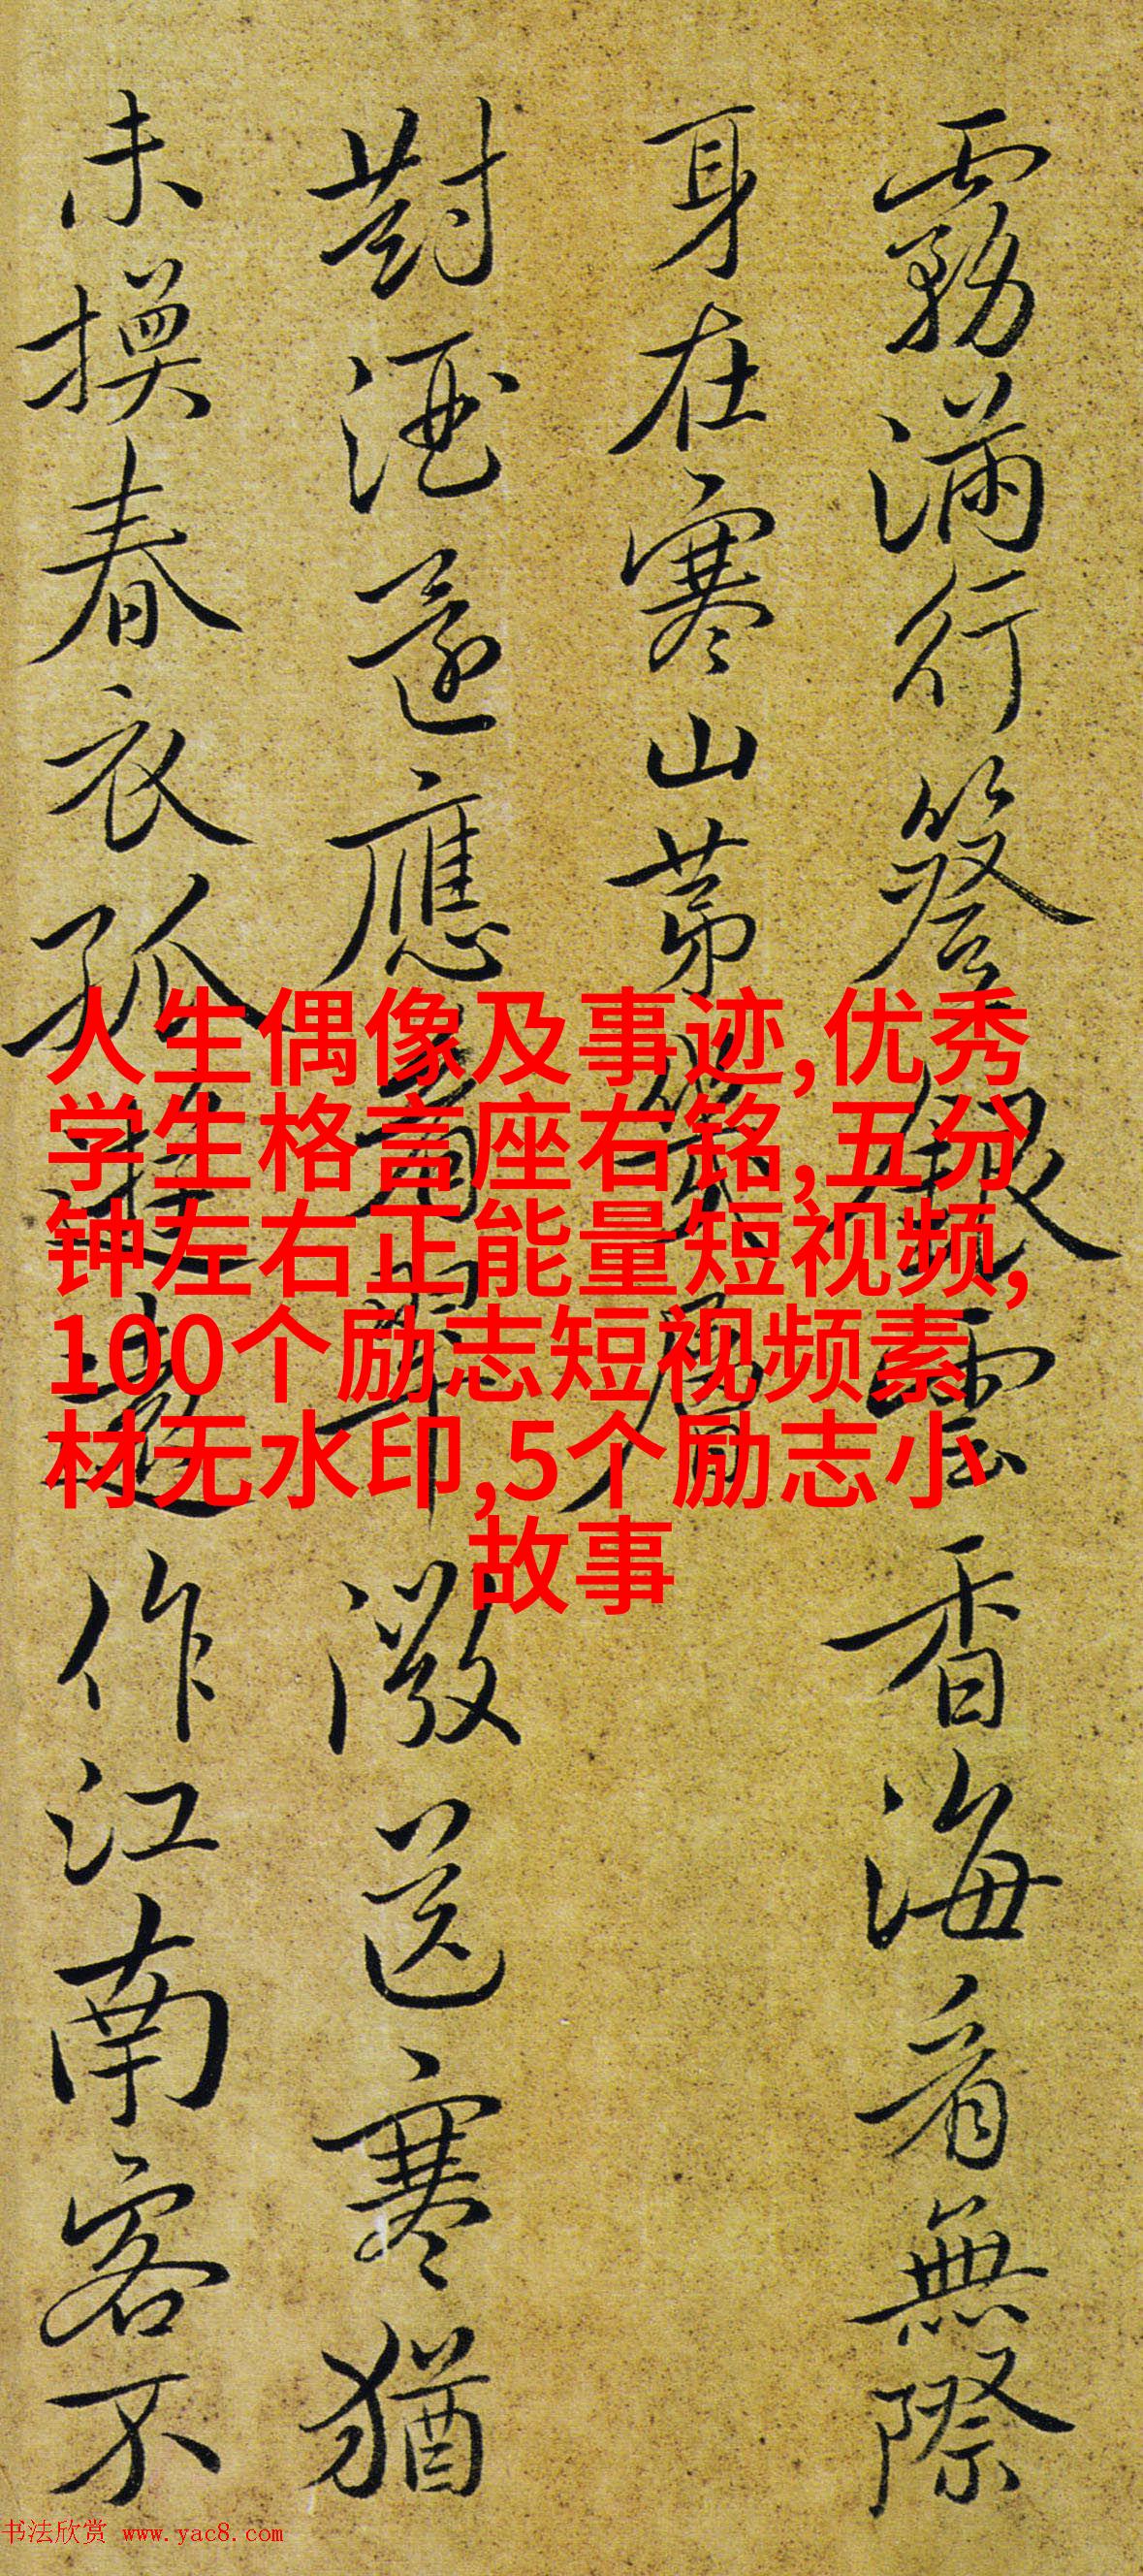 霧滿行 雲香海看無際
身在寒山苐幾層
對酒還應 送寒猶
未換春衣孤 作江南客不
人生偶像及事迹,优秀
学生格言座右铭,五分
钟左右正能量短视频,
100个励志短视频素
材无水印,5个励志小
故事
书法欣赏 www.yac8.com